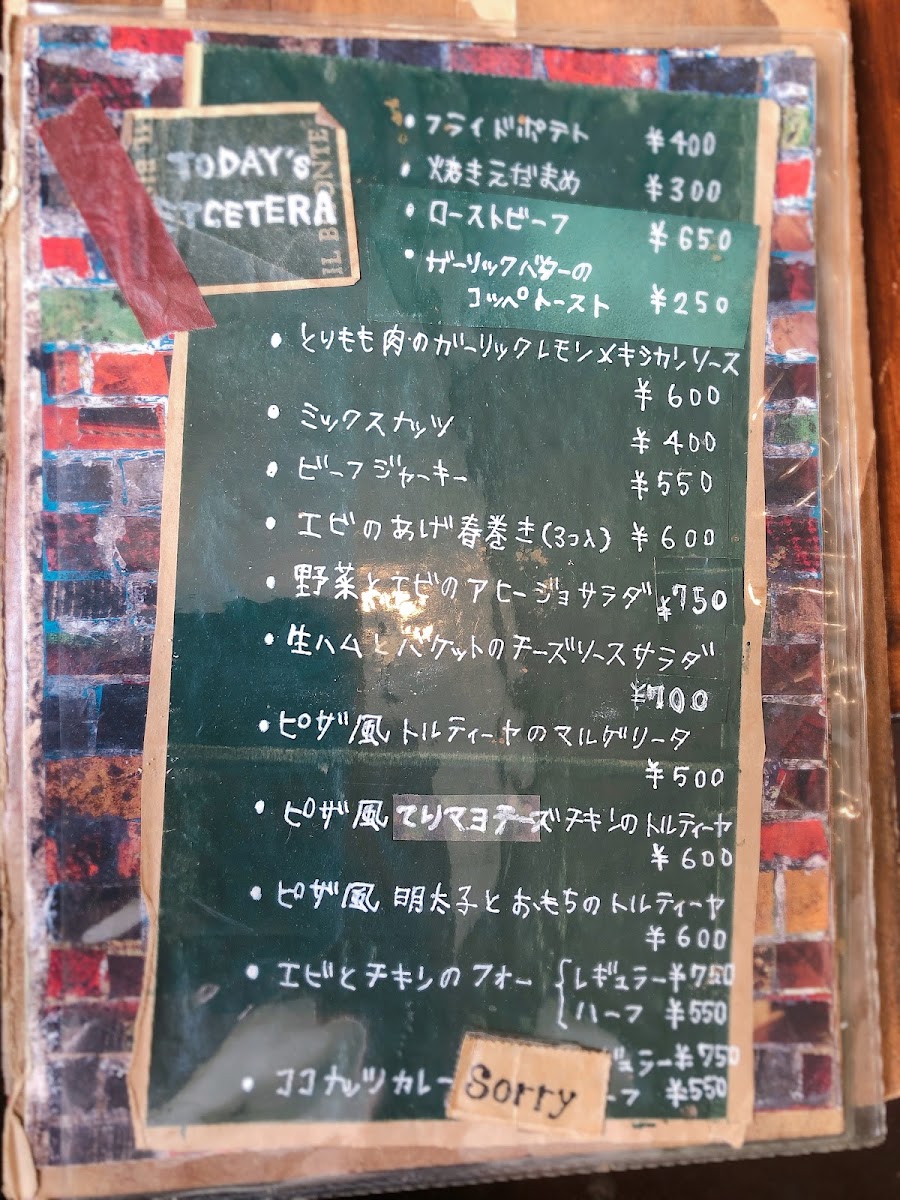 TODAY'S
ETCETERA
IL BONTE
・フライドポテト ¥400
・焼きえだまめ ¥300
・ローストビーフ ¥650
・ガーリックバターの
コッペトースト ¥250
・とりもも肉のガーリックレモンメキシカンソース
¥600
・ミックスナッツ ¥400
・ビーフジャーキー ¥550
・エビのあげ春巻き(3コ入) ¥600
・野菜とエビのアヒージョサラダ ¥750
・生ハムとバケットのチーズソースサラダ
¥700
・ピザ風トルティーヤのマルゲリータ
¥500
・ピザ風てりマヨチーズチキンのトルティーヤ
¥600
・ピザ風 明太子とおもちのトルティーヤ
¥600
・エビとチキンのフォー {レギュラー¥750
ハーフ ¥550
ギュラー¥750
・ココナッツカレー Sorry ーフ ¥550